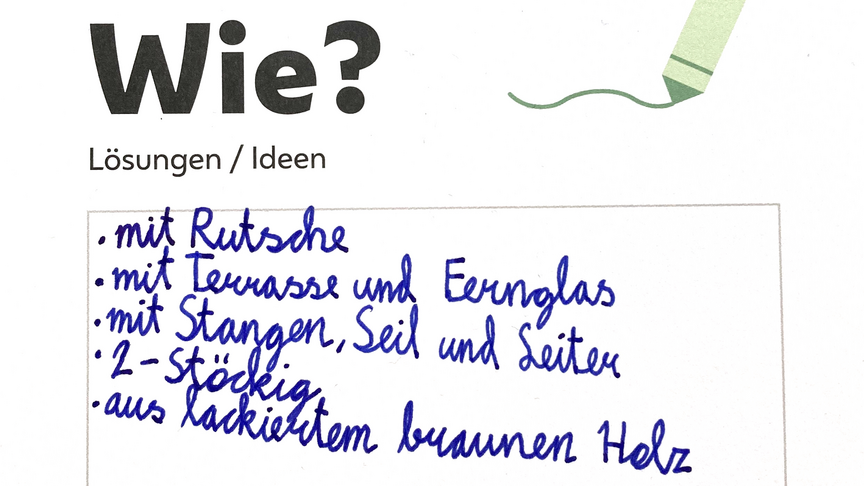 Wie?
Lösungen / Ideen
• mit Rutsche
• mit Terrasse und Fernglas
• mit Stangen, Seil und Leiter
• 2-Stöckig
• aus lackiertem braunen Holz